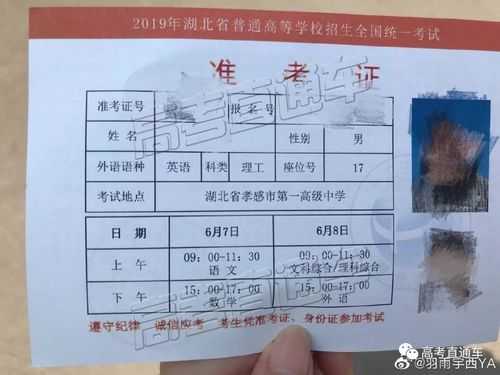 2019年湖北省普通高等学校招生全国统一考试
准考证
准考证号 报名号
姓名 性别 男
外语语种 英语 科类 理工 座位号 17
考试地点 湖北省孝感市第一高级中学
日期 6月7日 6月8日
上午 09:00-11:30 09:00-11:30
语文 文科综合/理科综合
下午 15:00-17:00 15:00-17:00
数学 外语
遵守纪律 诚信应考 考生凭准考证、身份证参加考试
高考直通车
高考直通车
高考直通车
高考直通车
@羽雨宇西YA